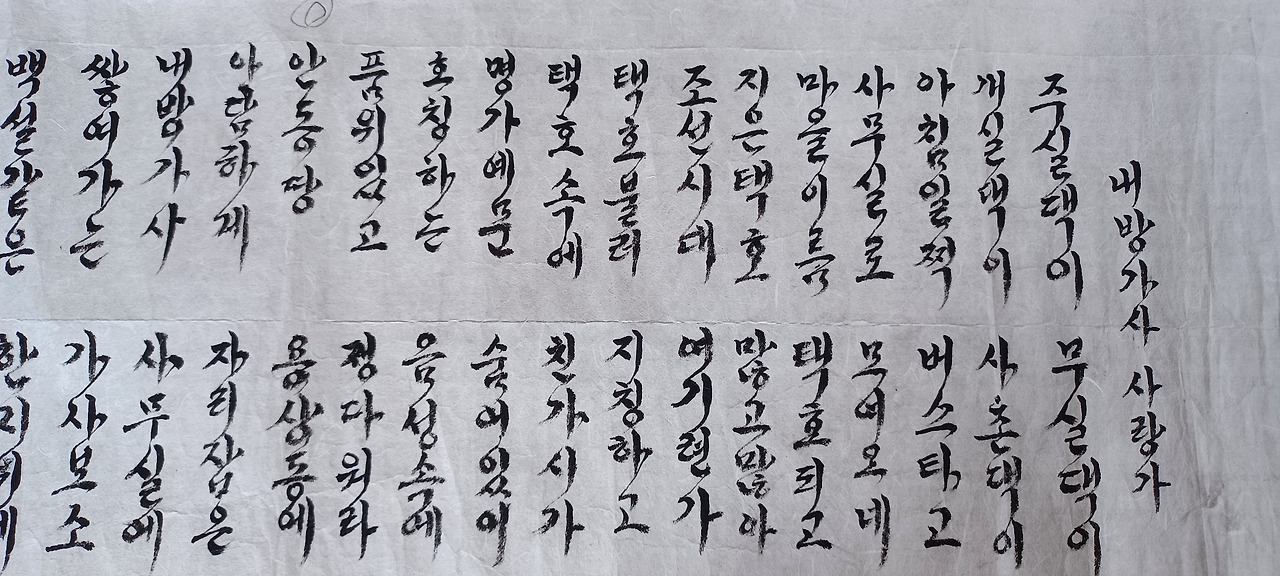 내방가사 사랑가
주실댁이 무실댁이
개실댁이 사촌댁이
아침일찍 버스타고
사무실로 모여오네
마을이름 택호되고
지은택호 많고많아
조선시대 여기련가
택호불러 지칭하고
택호속에 친가시가
명가예문 숨어있어
호칭하는 음성속에
품위있고 정다워라
안동땅 용상동에
아담하게 자리잡은
내방가사 사무실에
쌓여가는 가사보소
백설같은